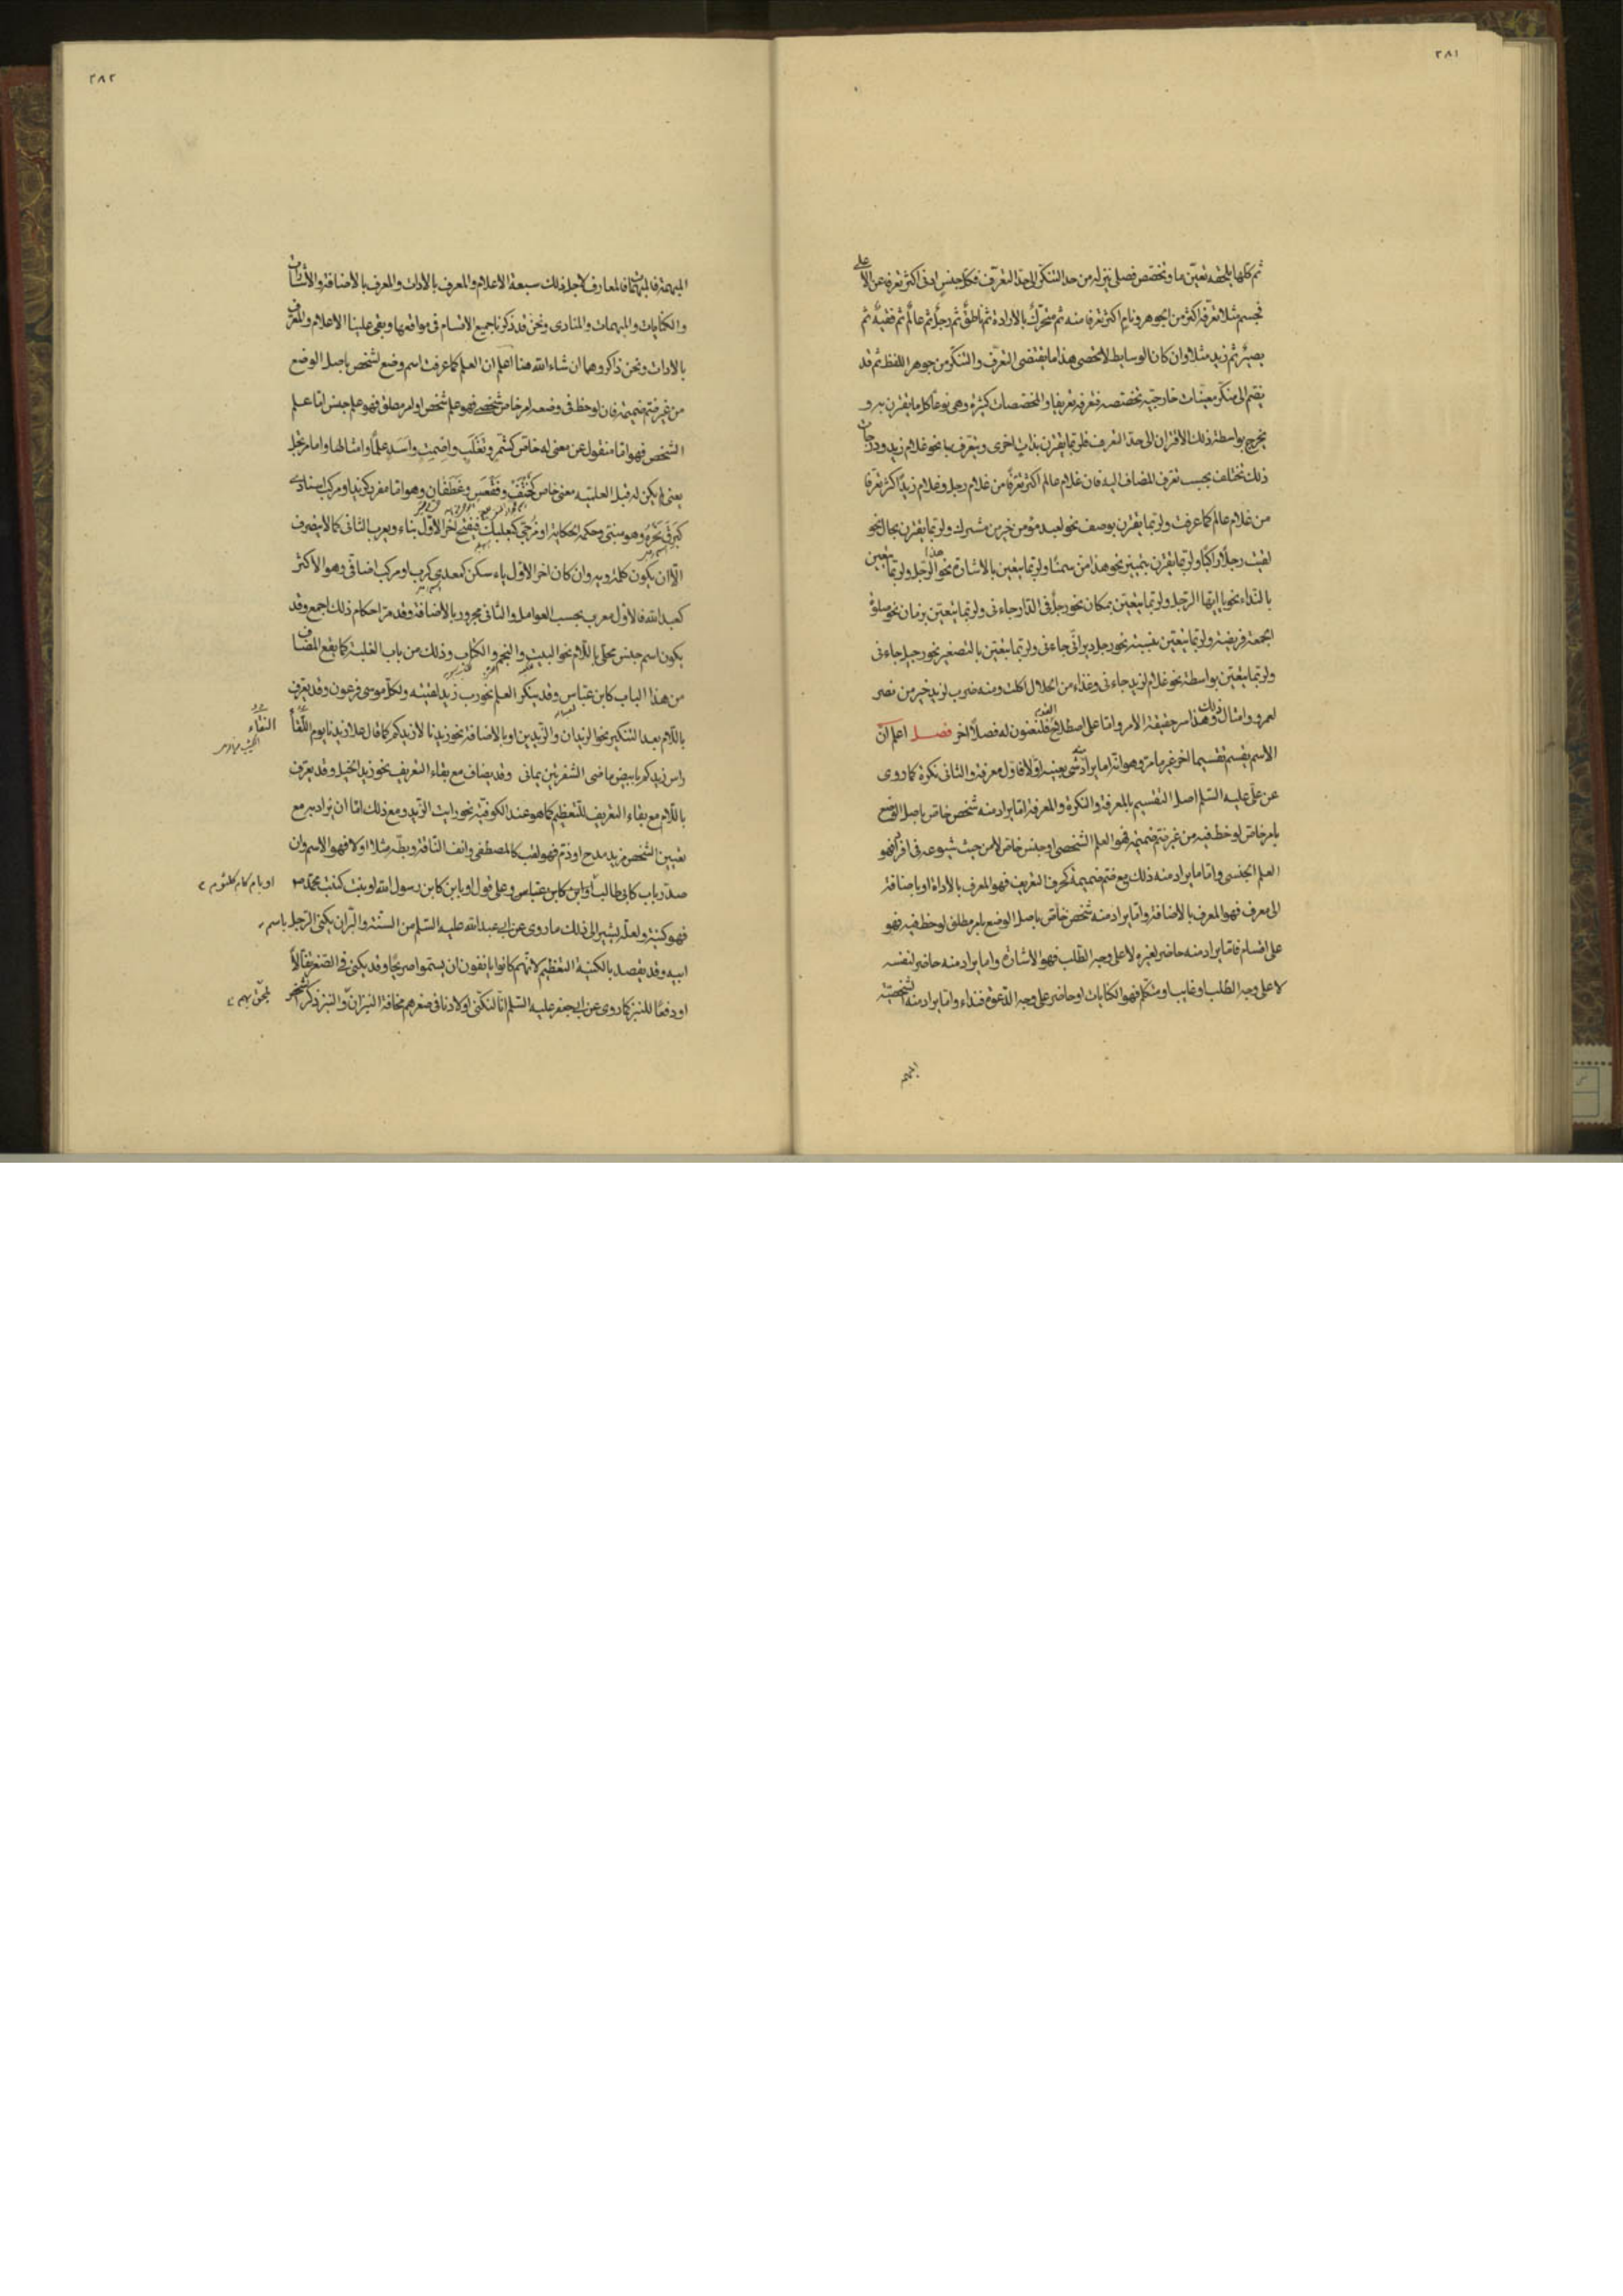 ٢٨١
ثم كلما يلحقه تعيّن ما وتخصّص فصلى يتزلزله من حد التنكّر الى حد التعرّف فكل جنس ادنى اكثر تعرفا من الاعلى
فجسم مثلا تعرّفه اكثر من الجوهر ونام اكثر تعرفا منه ثم متحرك بالارادة ثم ناطق ثم رجل ثم عالم ثم فقيه ثم
بصير ثم زيد مثلا وان كان الوسايط لا تحصى هذا ما يقتضى التعرّف والتنكّر من جوهر اللفظ ثم قد
ينضم الى منكّر معينات خارجية تخصصه فتعرفه تعريفا والمخصصات كثيرة وهى نوعا كل ما يقترن به و
يخرج بواسطة ذلك الاقتران الى حد التعريف فلربما يقترن بذات اخرى ويتعرف بها نحو غلام زيد ودرجات
ذلك تختلف بحسب تعرف المضاف اليه فان غلام عالم اكثر تعرّفا من غلام رجل وغلام زيد اكثر تعرفا
من غلام عالم كما عرفت ولربما يقترن بوصف نحو لعبد مؤمن خير من مشرك ولربما يقترن بحال نحو
لقيت رجلا راكبا ولربما يقترن بتمييز نحو هذا من سمنا ولربما يتعين بالاشارة نحو هذا الرجل ولربما يتعين
بالنداء نحو يا ايها الرجل ولربما يتعين بمكان نحو رجل فى الدار جاءنى ولربما يتعين بزمان نحو صلوة
الجمعة فريضة ولربما يتعين بنسبة نحو رجل ديرانّى جاءنى ولربما يتعين بالتصغير نحو رجيل جاءنى
ولربما يتعين بواسطة نحو غلام لزيد جاءنى وغذاء من الحلال اكلت ومنه ضرب لزيد خير من نصر
لعمرو وامثال ذلك وهذا سر حقيقة الامر واما على اصطلاح القوم فلنعنون له فصلا اخر فصل اعلم ان
الاسم يقسم تقسيما اخر غير ما مرّ وهو انه اما يراد به شىء بعينه او لا فالاول معرفة والثانى نكرة كما روى
عن على عليه السلم اصل التقسيم بالمعرفة والنكرة والمعرفة اما يراد منه شخص خاص باصل الوضع
بامر خاص لوحظ فيه من غير ضم ضميمة فهو العلم الشخصى او جنس خاص لا من حيث شيوعه فى افراده فهو
العلم الجنسى واما ما يراد منه ذلك مع ضم ضميمة كحرف التعريف فهو المعرف بالاداة او باضافة
الى معرف فهو المعرف بالاضافة واما يراد منه شخص خاص باصل الوضع بامر مطلق لوحظ فيه فهو
على اقسام فاما يراد منه حاضر لغيره لا على وجه الطلب فهو الاشارة واما يراد منه حاضر لنفسه
لا على وجه الطلب او غايب او متكلم فهو الكنايات او حاضر على وجه الدعوة فنداء واما يراد منه شخصية
المبهمة
٢٨٢
المبهمة فالمبهمات فالمعارف لاجل ذلك سبعة الاعلام والمعرف بالادات والمعرف بالاضافة والاشارات
والكنايات والمبهمات والمنادى ونحن قد ذكرنا جميع الاقسام فى مواقعها وبقى علينا الاعلام والمعرف
بالادات ونحن ذاكروهما ان شاء الله هنا اعلم ان العلم كما عرفت اسم وضع لشخص باصل الوضع
من غير ضم ضميمة فان لوحظ فى وضعه امر خاص شخصى فهو علم شخص او امر مطلق فهو علم جنس اما علم
الشخص فهو اما منقول عن معنى له خاص كشمر وتغلب واصمت واسد علما وامثالها واما مرتجل
يعنى لم يكن له قبل العلمية معنى خاص كحنتف وفقعس وغطفان وهو اما مفرد كزيد او مركب اسنادى
كبرق نحره وهو مبنى وحكمه الحكاية او مزجى كبعلبك فيفتح اخر الاول بناء ويعرب الثانى كما لا ينصرف
الا ان يكون كلمة ويه وان كان اخر الاول ياء سكن كمعدى كرب او مركب اضافى وهو الاكثر
كعبد الله فالاول معرب بحسب العوامل والثانى مجرور بالاضافة وقد مر احكام ذلك اجمع وقد
يكون اسم جنس محلى باللام نحو البيت والنجم والكتاب وذلك من باب الغلبة كما يقع المضاف
من هذا الباب كابن عباس وقد ينكر العلم نحو رب زيد لقيته ولكل موسى فرعون وقد يعرف
باللام بعد التنكير نحو الزيدان والزيدين او بالاضافة نحو زيدنا لا زيدكم كما قال علا زيدنا يوم اللقاء
النقاء
راس زيدكم بابيض ماضى الشفرتين يمانى وقد يضاف مع بقاء التعريف نحو زيد الخيل وقد يعرف
باللام مع بقاء التعريف للتعظيم كما هو عند الكوفية نحو رايت الزيد ومع ذلك اما ان يراد به مع
تعيين الشخص مزيد مدح او ذم فهو لقب كالمصطفى وانف الناقة وبطة مثلا او لا فهو الاسم وان
صدر باب كابى طالب او ابن كابن عباس وعلى قول او بابن كابن رسول الله او بنت كبنت محمد ص
او بام كام كلثوم
فهو كنية ولعله يشير الى ذلك ما روى عن ابى عبد الله عليه السلم من السنة والبر ان يكنى الرجل باسم
ابيه وقد يقصد بالكنية التعظيم لانهم كانوا يانفون ان يسموا صريحا وقد يكنى فى الصغر تفألا
او دفعا للنبز كما روى عن ابى جعفر عليه السلم انا لنكنى اولادنا فى صغرهم مخافة النبز ان والنبز ذكر الشخص
يلحق بهم